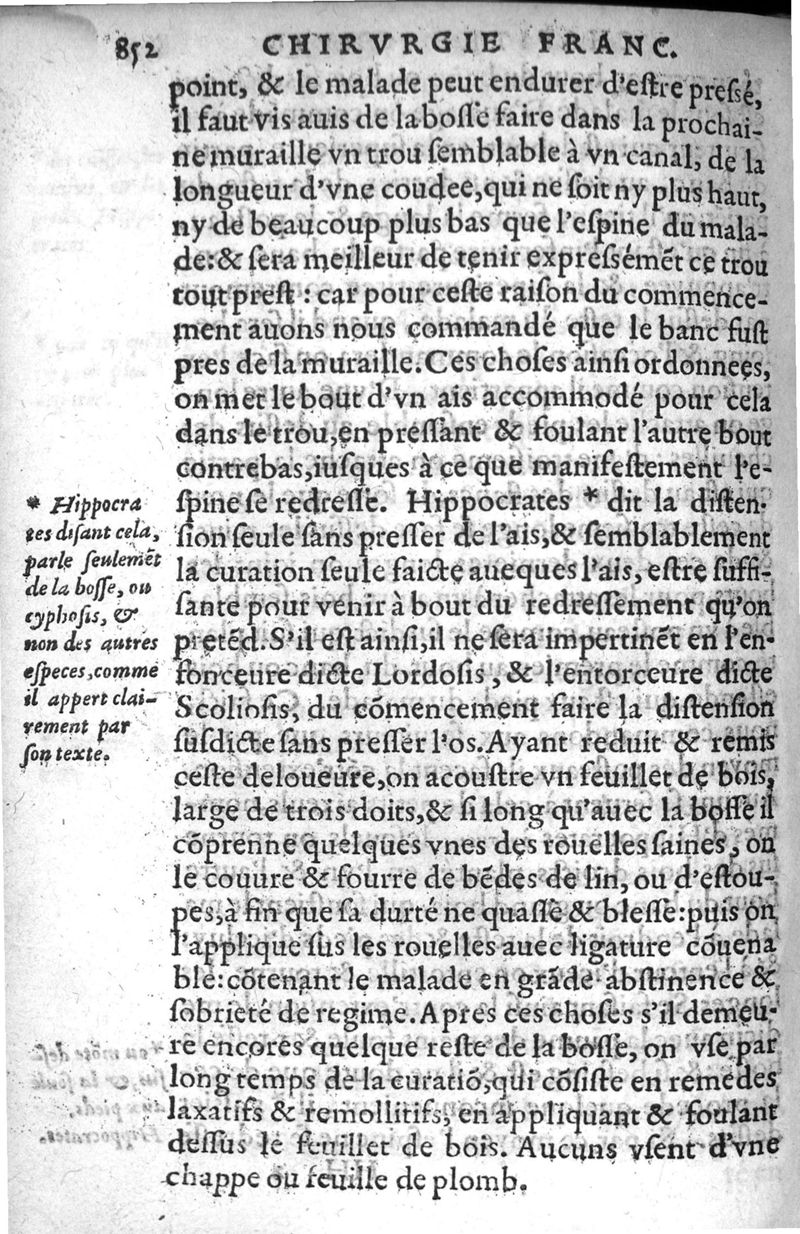 852 CHIRVRGIE FRANC.
point, & le malade peut endurer d'eſtre preſſé,
il faut vis auis de la boſſe faire dans la prochai-
ne muraille vn trou ſemblable à vn canal, de la
longueur d'vne coudee, qui ne ſoit ny plus haut,
ny de beaucoup plus bas que l'eſpine du mala-
de: & ſera meilleur de tenir expreſſémẽt ce trou
tout preſt : car pour ceſte raiſon du commence-
ment auons nous commandé que le banc fuſt
pres de la muraille. Ces choſes ainſi ordonnees,
on met le bout d'vn ais accommodé pour cela
dans le trou, en preſſant & foulant l'autre bout
contrebas, iuſques à ce que manifeſtement l'e-
ſpine ſe redreſſe. Hippocrates * dit la diſten-
ſion ſeule ſans preſſer de l'ais, & ſemblablement
la curation ſeule faicte aueques l'ais, eſtre ſuffi-
ſante pour venir à bout du redreſſement qu'on
pretẽd. S'il eſt ainſi, il ne ſera impertinẽt en l'en-
fonceure dicte Lordoſis, & l'entorceure dicte
Scolioſis, du cõmencement faire la diſtenſion
ſuſdicte ſans preſſer l'os. Ayant reduit & remis
ceſte deloueure, on acouſtre vn feuillet de bois,
large de trois doits, & ſi long qu'auec la boſſe il
cõprenne quelques vnes des rouelles ſaines, on
le couure & fourre de bẽdes de lin, ou d'eſtou-
pes, à fin que ſa durté ne quaſſe & bleſſe: puis on
l'applique ſus les rouelles auec ligature cõuena
ble: cõtenant le malade en grãde abſtinence &
ſobrieté de regime. Apres ces choſes s'il demeu-
re encores quelque reſte de la boſſe, on vſe par
long temps de la curatiõ, qui cõſiſte en remedes
laxatifs & remollitifs, en appliquant & foulant
deſſus le feuillet de bois. Aucuns vſent d'vne
chappe ou feuille de plomb.
* Hippocra
tes diſant cela,
parle ſeulemẽt
de la boſſe, ou
cyphoſis, &
non des autres
eſpeces, comme
il appert clai-
rement par
ſon texte.